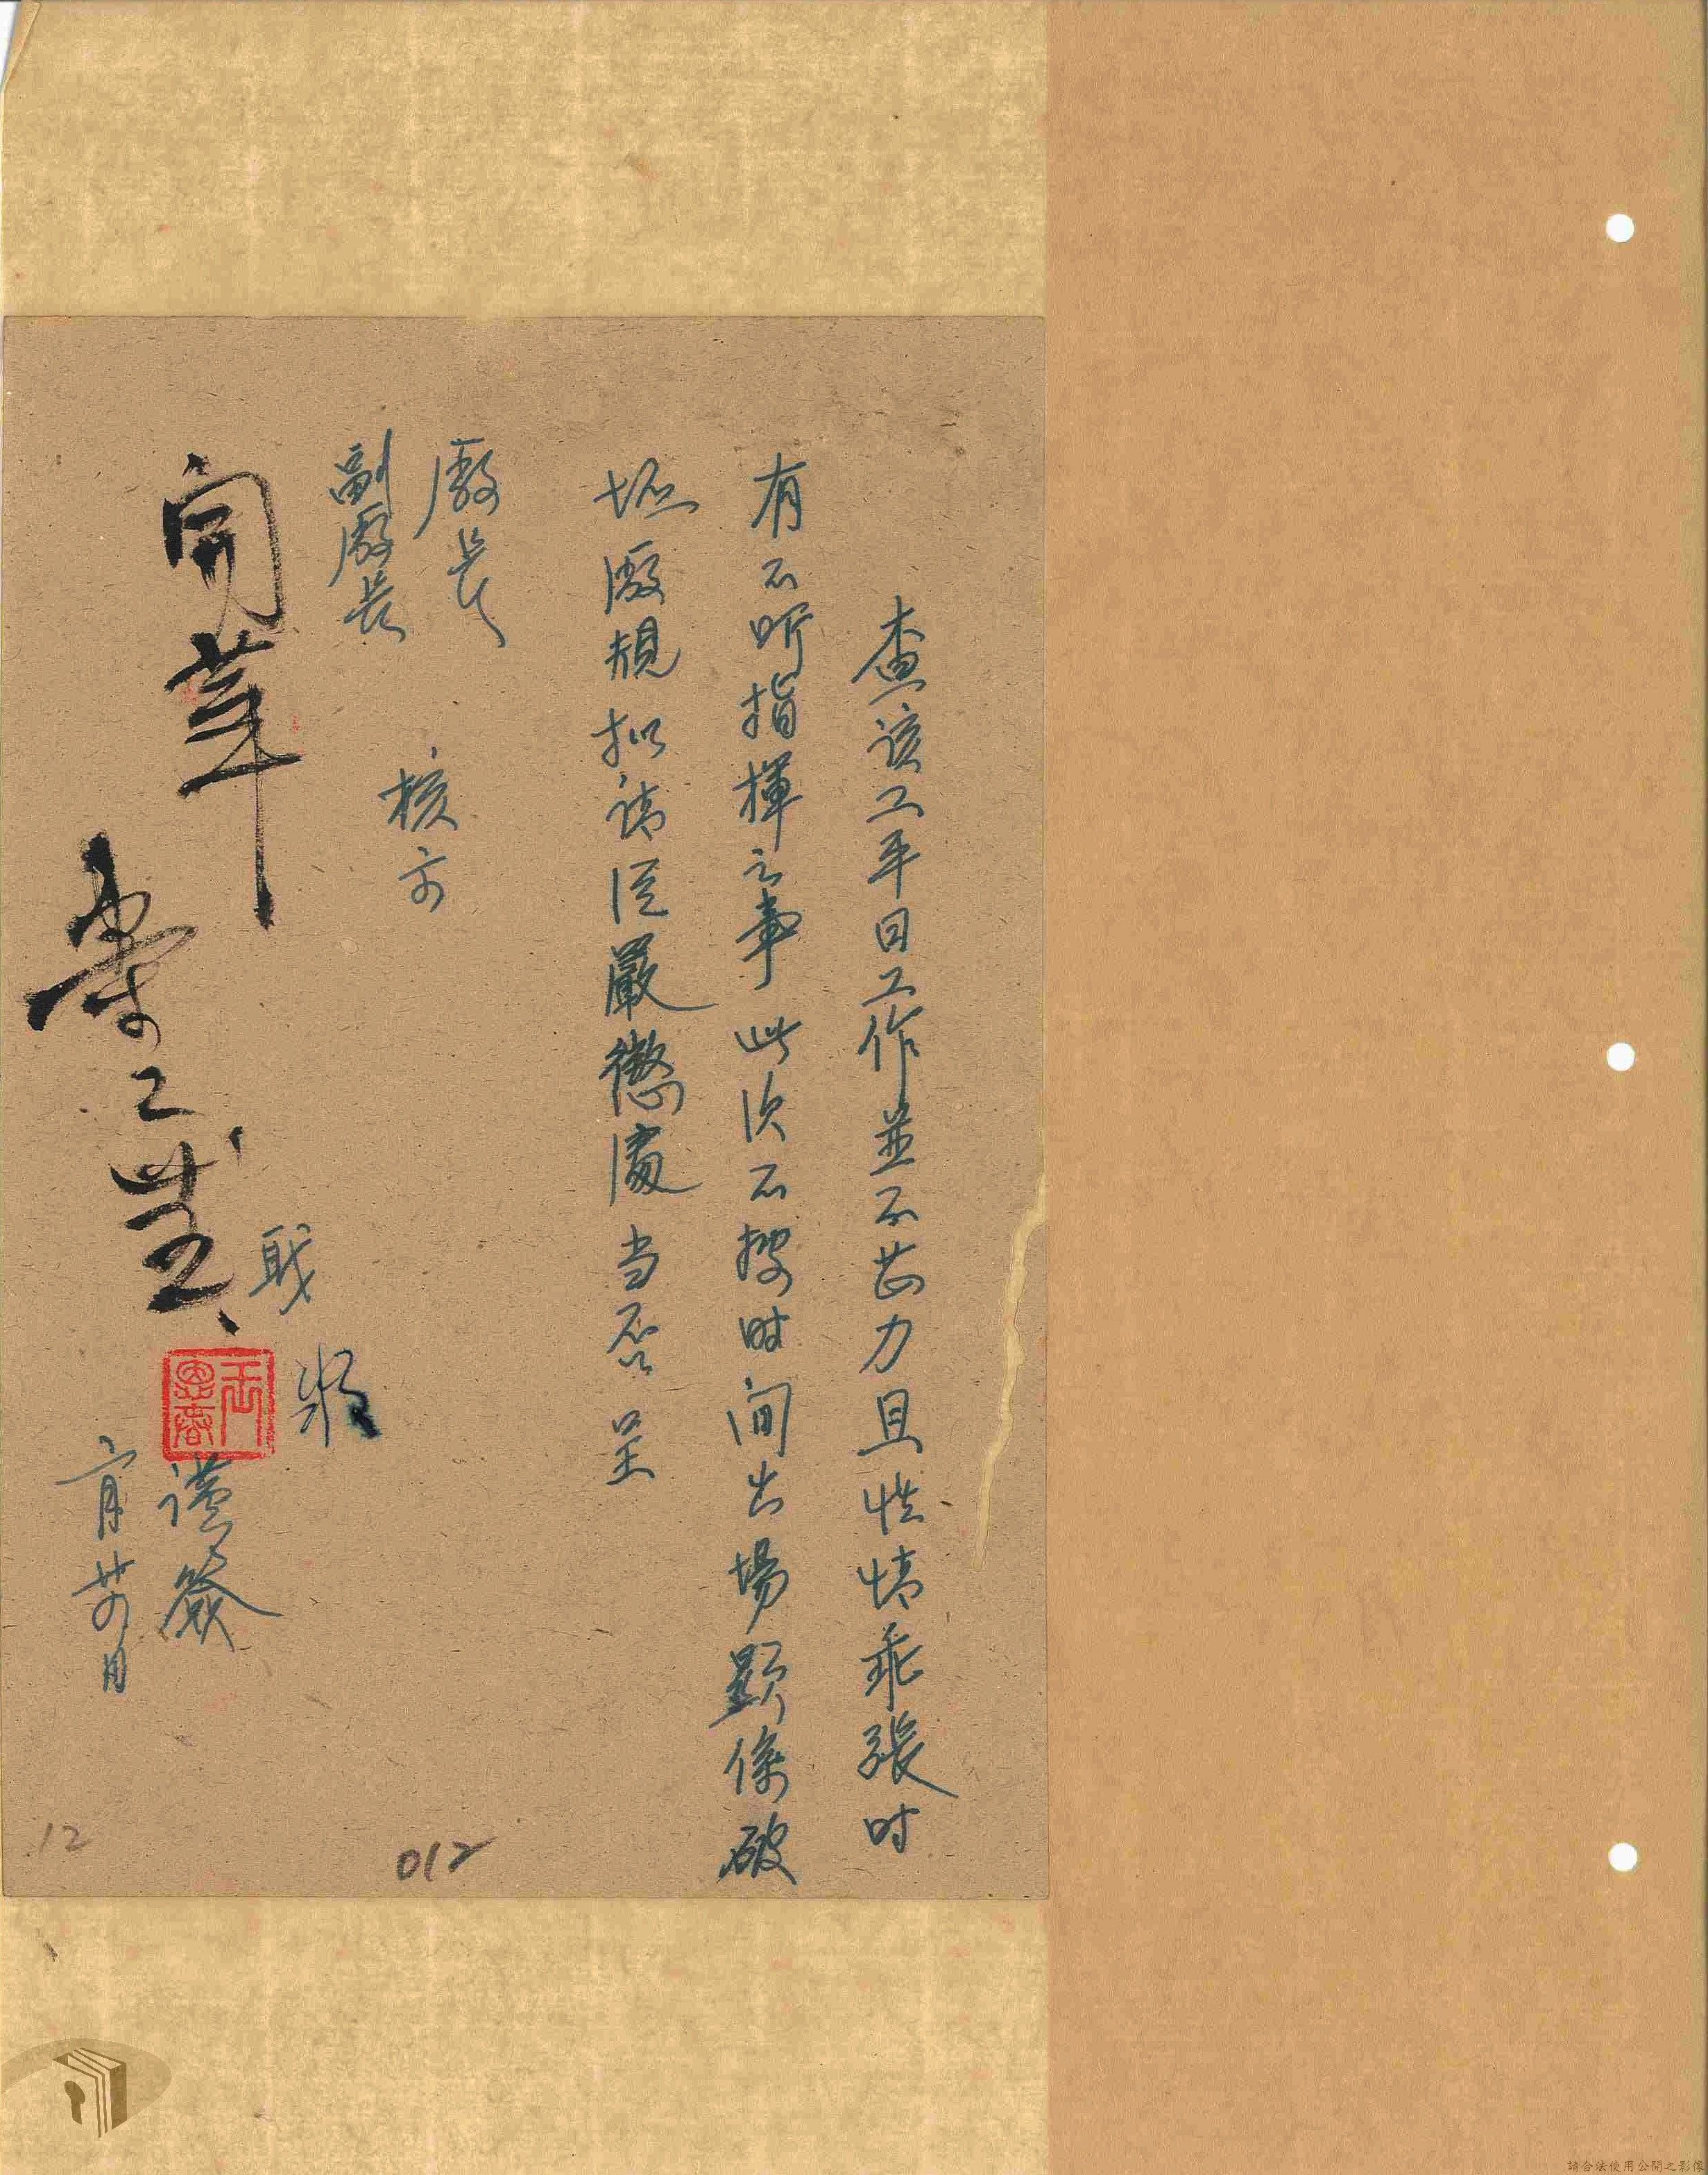 查該工平日工作並不出力且性情乖張时
有不听指揮之事此次不按时间出場顯係破
坏廠規拟請從嚴懲處当否呈
廠長
副廠長
核示
開革
職
謹簽
六月廿四日
012
12
請合法使用公開之影像